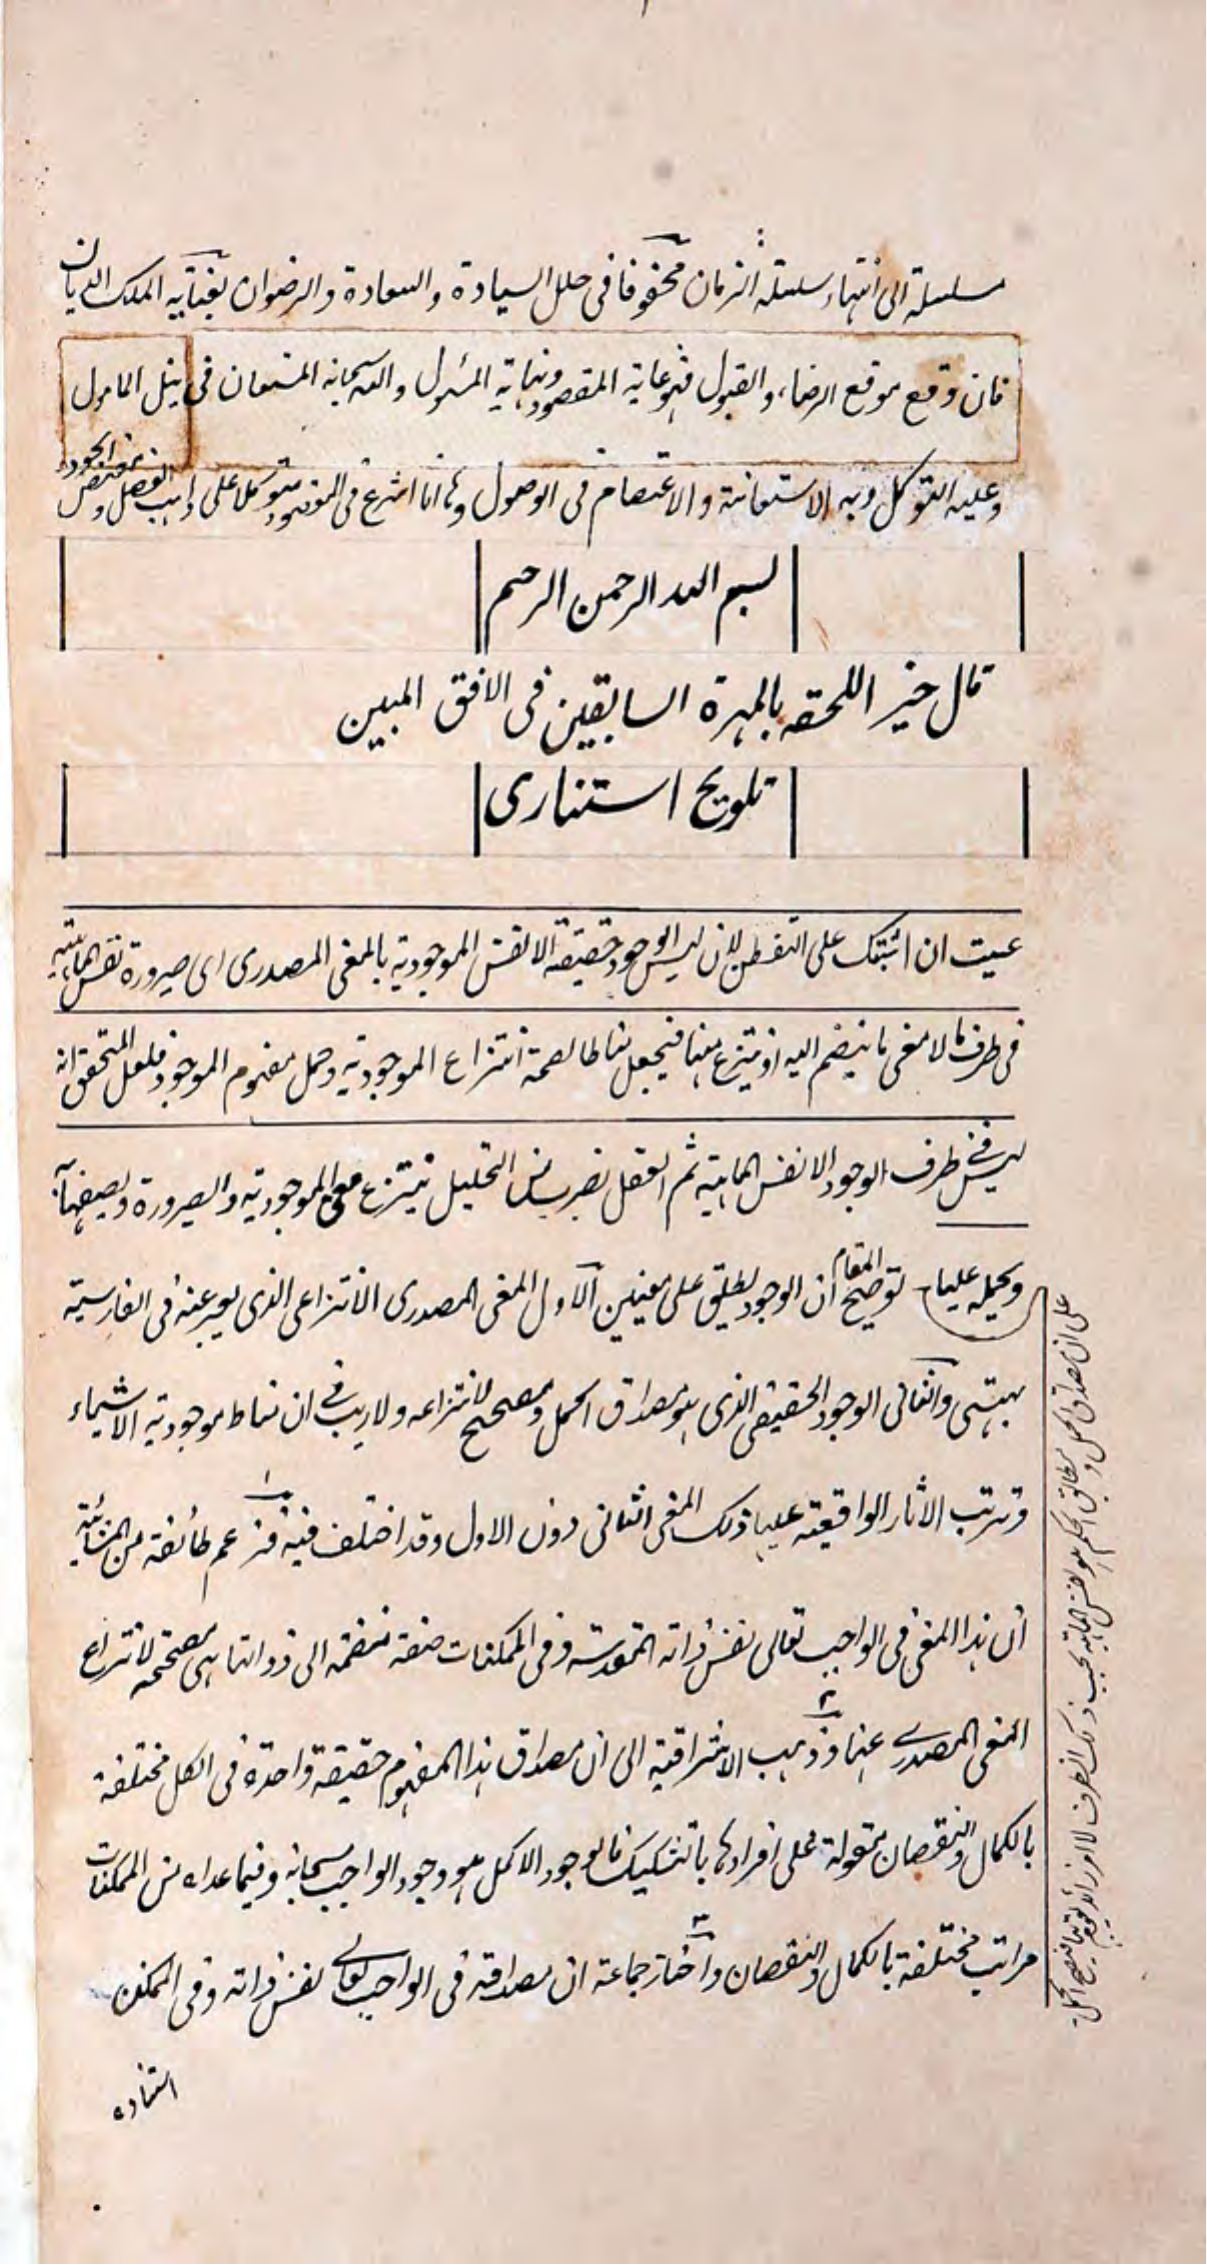 سلسلته الى انتهاء سلسلة الزمان محفوفا فى حلل السيادة والسعادة والرضوان بعناية الملك الديان
فان وقع موقع الرضاء والقبول فهو غاية المقصود ونهاية المسئول والله سبحانه المستعان فى نيل المامول
وعليه التوكل وبه الاستعانة والاعتصام فى الوصول وها انا اشرع فى المقصود متوكلا على واهب الفضل ومفيض الجود
بسم الله الرحمن الرحيم
قال خير اللحقه بالمهرة السابقين فى الافق المبين
تلويح استنارى
عسيت ان اثبتك على التفطن لان ليس الوجود حقيقة الا نفس الموجودية بالمعنى المصدرى اى صيرورة نفس الماهية
فى ظرف ما لا معنى ما ينضم اليه او ينتزع منها فيجعل مناطا لصحة انتزاع الموجودية وحمل مفهوم الموجود فلعل المتحقق انه
ليس فى ظرف الوجود الا نفس الماهية ثم العقل بضرب من التحليل ينتزع معنى الموجودية والصيرورة ويصفها به
ويحمله عليها توضيح المقام ان الوجود يطلق على معنيين الاول المعنى المصدرى الانتزاعى الذى يعبر عنه فى الفارسية
بهستى والثانى الوجود الحقيقى الذى هو مصداق الحمل ومصحح لانتزاعه ولا ريب فى ان مناط موجودية الاشياء
وترتب الاثار الواقعية عليها ذلك المعنى الثانى دون الاول وقد اختلف فيه فزعم طائفة من المشائية
ان هذا المعنى فى الواجب تعالى نفس ذاته المقدسة وفى الممكنات صفة منضمة الى ذواتها هى مصححة لانتزاع
المعنى المصدرى عنها وذهب الاشراقية الى ان مصداق هذا المفهوم حقيقة واحدة فى الكل مختلفة
بالكمال والنقصان مقولة على افرادها بالتشكيك فالوجود الاكمل هو وجود الواجب سبحانه وفيما عداه من الممكنات
مراتب مختلفة بالكمال والنقصان واختار جماعة ان مصداقه فى الواجب تعالى نفس ذاته وفى الممكن
استناده
على ان مصداق الحمل ومطابق الحكم هو نفس الماهية بحسب ذلك الظرف لا امر زائد يقوم بها فيصح الحمل